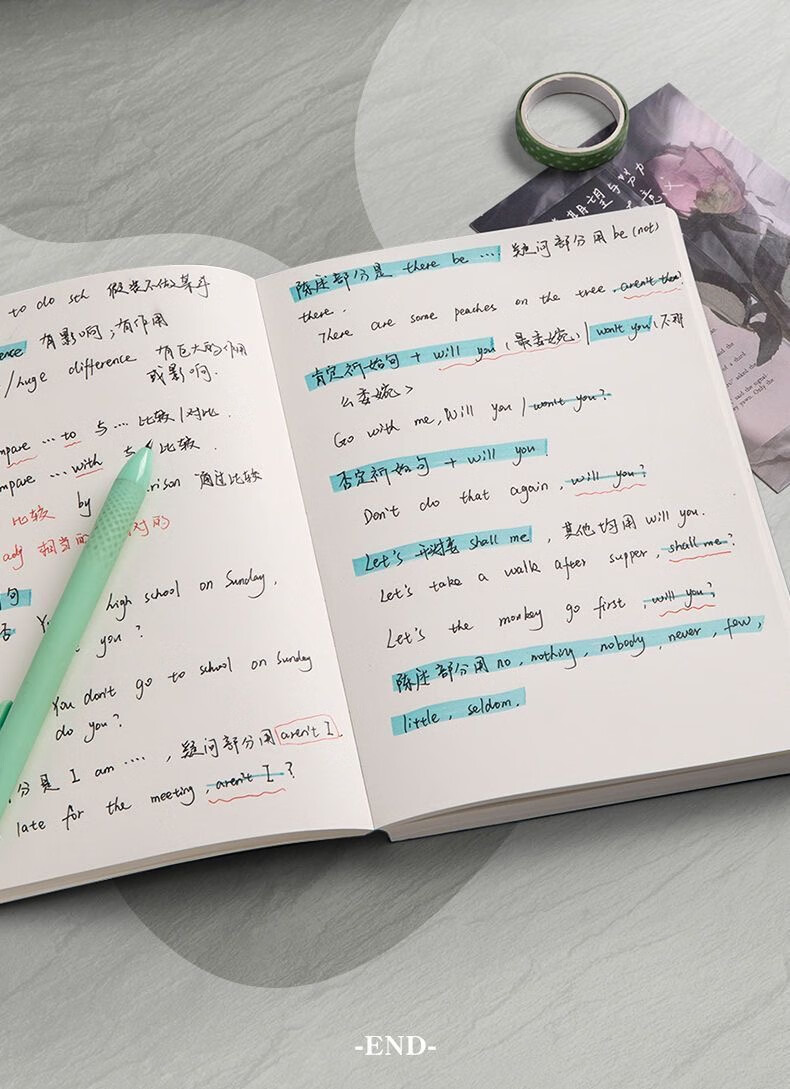 to do sth 假装不做某事
ence 有影响；有作用
/huge difference 有巨大的作用
或影响.
mpare … to 与 … 比较/对比.
mpare … with 与 比较.
比较 by rison 通过比较
adj 相当的 对的
句
high school on Sunday,
you?
You don't go to school on Sunday
do you?
分是 I am ····, 疑问部分用 aren't I.
late for the meeting, aren't I?
陈述部分是 there be ···· 疑问部分用 be (not)
there.
There are some peaches on the tree, aren't there?
肯定祈始句 + will you (最委婉) | won't you (不那
么委婉>
Go with me, Will you / won't you?
否定祈始句 + will you
Don't do that again, will you?
Let's 开头 shall me, 其他均用 will you.
Let's take a walk after supper, shall me?
Let's the monkey go first, will you?
陈述部分用 no, nothing, nobody, never, few,
little, seldom.
期望与努力
-END-